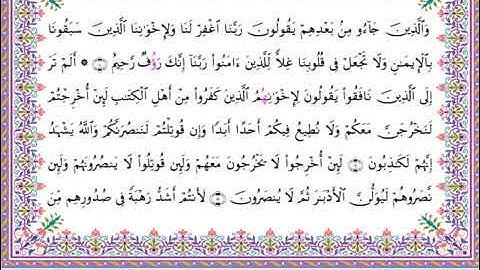 وَٱلَّذِينَ جَآءُو مِنۢ بَعْدِهِمْ يَقُولُونَ رَبَّنَا ٱغْفِرْ لَنَا وَلِإِخْوَٰنِنَا ٱلَّذِينَ سَبَقُونَا
بِٱلْإِيمَـٰنِ وَلَا تَجْعَلْ فِى قُلُوبِنَا غِلًّا لِّلَّذِينَ ءَامَنُوا۟ رَبَّنَآ إِنَّكَ رَءُوفٌ رَّحِيمٌ ۝ أَلَمْ تَرَ
إِلَى ٱلَّذِينَ نَافَقُوا۟ يَقُولُونَ لِإِخْوَٰنِهِمُ ٱلَّذِينَ كَفَرُوا۟ مِنْ أَهْلِ ٱلْكِتَـٰبِ لَئِنْ أُخْرِجْتُمْ
لَنَخْرُجَنَّ مَعَكُمْ وَلَا نُطِيعُ فِيكُمْ أَحَدًا أَبَدًا وَإِن قُوتِلْتُمْ لَنَنصُرَنَّكُمْ وَٱللَّهُ يَشْهَدُ
إِنَّهُمْ لَكَـٰذِبُونَ ۝ لَئِنْ أُخْرِجُوا۟ لَا يَخْرُجُونَ مَعَهُمْ وَلَئِن قُوتِلُوا۟ لَا يَنصُرُونَهُمْ وَلَئِن
نَّصَرُوهُمْ لَيُوَلُّنَّ ٱلْأَدْبَـٰرَ ثُمَّ لَا يُنصَرُونَ ۝ لَأَنتُمْ أَشَدُّ رَهْبَةً فِى صُدُورِهِم مِّنَ